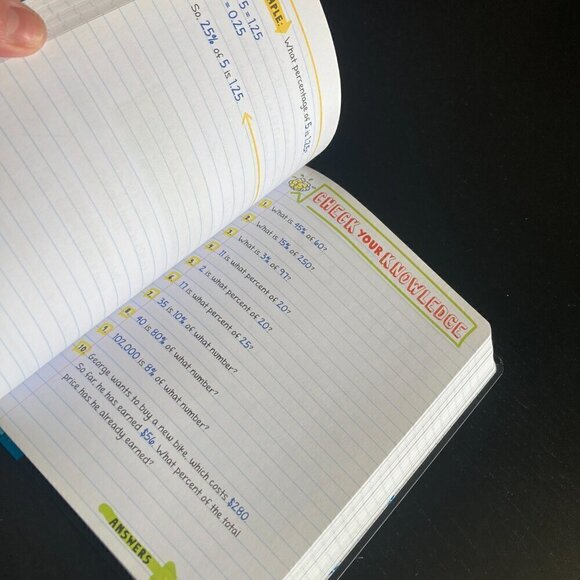 MPLE:
What percentage of 5 is 1.25?
5 = 1.25
= 0.25
So, 25% of 5 is 1.25.
CHECK YOUR KNOWLEDGE
1. What is 45% of 60?
2. What is 15% of 250?
3. What is 3% of 97?
4. 11 is what percent of 20?
5. 2 is what percent of 20?
6. 17 is what percent of 25?
7. 35 is 10% of what number?
8. 40 is 80% of what number?
9. 102,000 is 8% of what number?
10. George wants to buy a new bike, which costs $280.
So far, he has earned $56. What percent of the total
price has he already earned?
ANSWERS